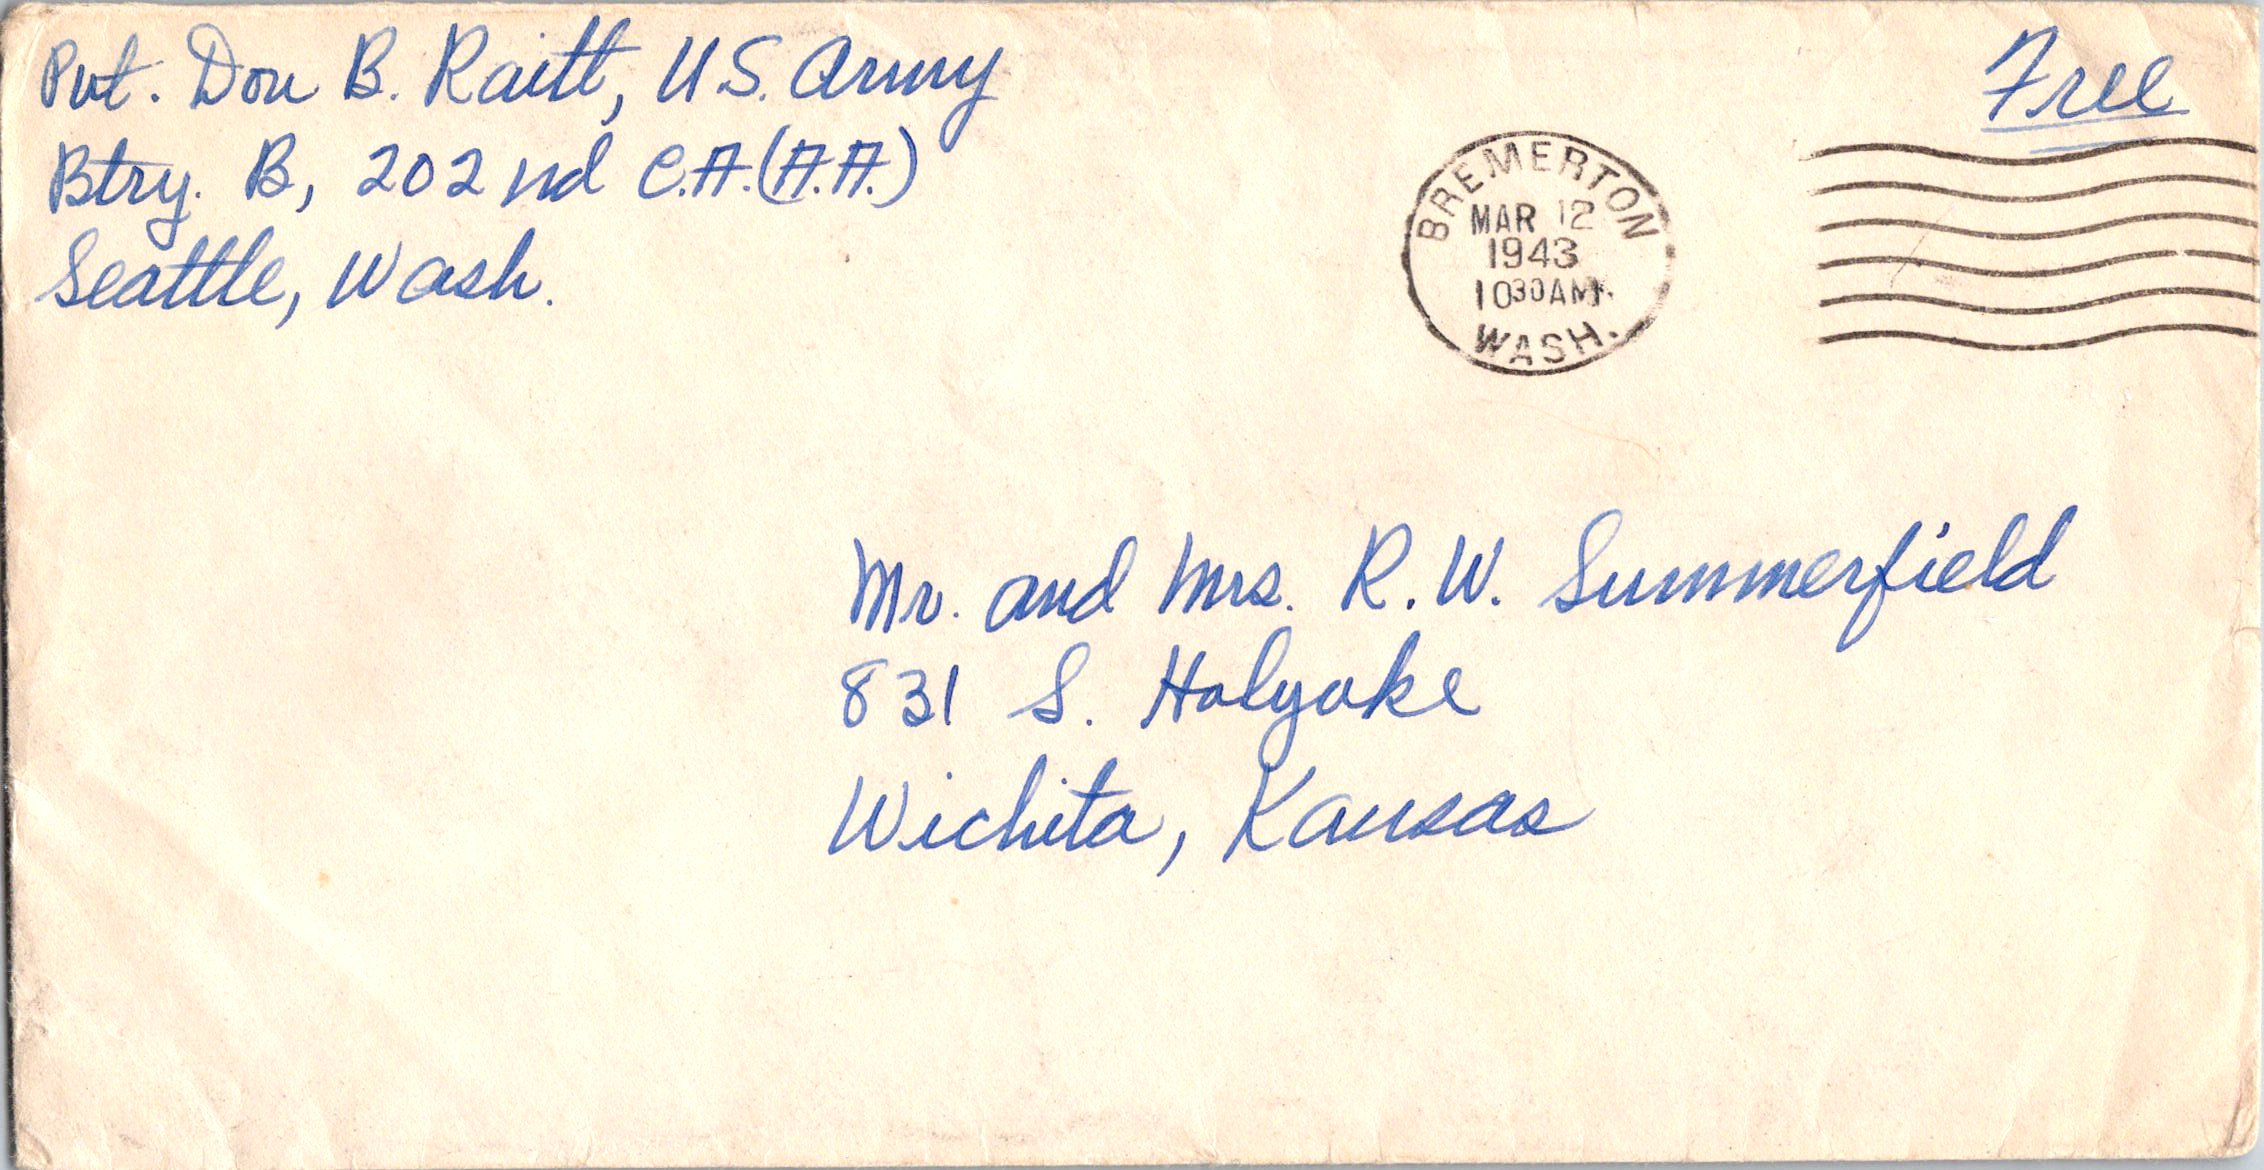 Pvt. Don B. Raitt, U.S. Army
Btry. B, 202nd C.A.(A.A.)
Seattle, Wash.
Free
BREMERTON
MAR 12
1943
1030AM
WASH.
Mr. and Mrs. R.W. Summerfield
831 S. Holyoke
Wichita, Kansas